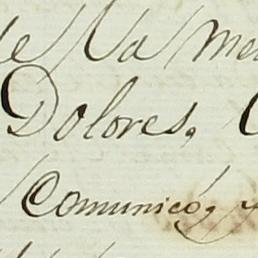 de Na me
Dolores,
Comunicó, y